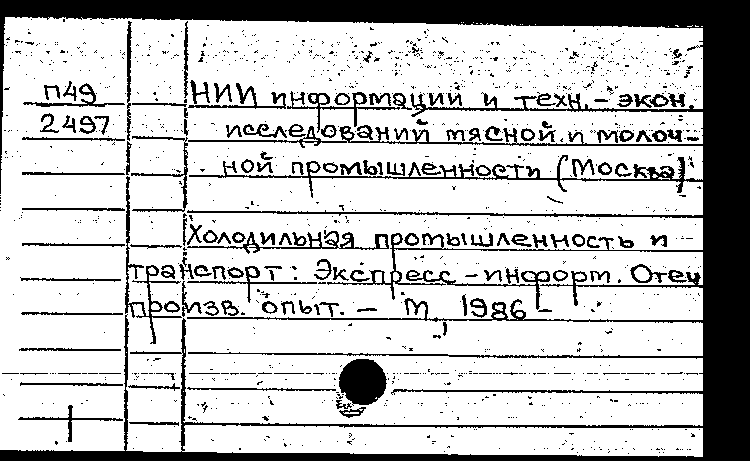 П49
2497
НИИ информации и техн.-экон.
исследований мясной и молоч-
ной промышленности (Москва)
Холодильная промышленность и
транспорт: Экспресс-информ. Отеч
произв. опыт. – М., 1986 –